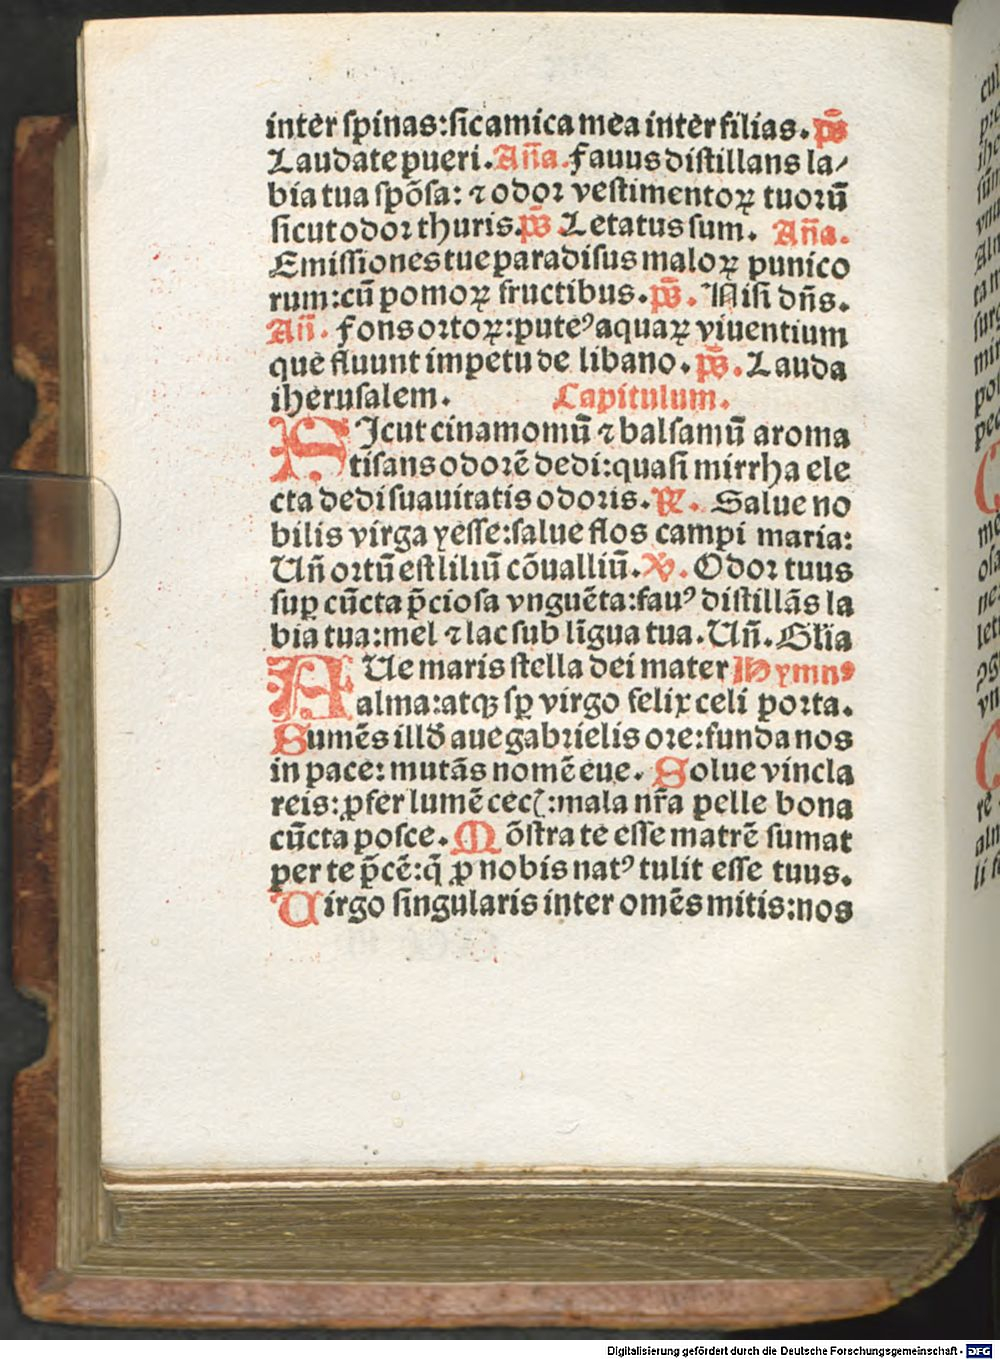 inter spinas: sic amica mea inter filias. p̄s
Laudate pueri. Añа. Fauus distillans la/
bia tua spōsa: ⁊ odor vestimentoꝝ tuorū
sicut odor thuris. p̄s Letatus sum. Aña.
Emissiones tue paradisus maloꝝ punico
rum: cū pomoꝝ fructibus. p̄s. Nisi dn̄s.
Añ. Fons ortoꝝ: puteꝰ aquaꝝ viuentium
que fluunt impetu de libano. p̄s. Lauda
iherusalem. Capitulum.
SIcut cinamomū ⁊ balsamū aroma
tisans odorē dedi: quasi mirrha ele
cta dedi suauitatis odoris. ℟. Salue no
bilis virga yesse: salue flos campi maria:
Un̄ ortū est liliū cōualliū. ℣. Odor tuus
suꝑ cūcta p̄ciosa vnguēta: fauꝰ distillās la
bia tua: mel ⁊ lac sub līgua tua. Un̄. Gl̄ia
AUe maris stella dei mater Hymnꝰ
alma: atqꝫ sꝑ virgo felix celi porta.
Sumēs illđ aue gabrielis ore: funda nos
in pace: mutās nomē eue. Solue vincla
reis: ꝓfer lumē cecꝭ: mala nr̄a pelle bona
cūcta posce. Mōstra te esse matrē sumat
per te p̄cē: q̄ ꝓ nobis natꝰ tulit esse tuus.
Uirgo singularis inter omēs mitis: nos
Digitalisierung gefördert durch die Deutsche Forschungsgemeinschaft - DFG